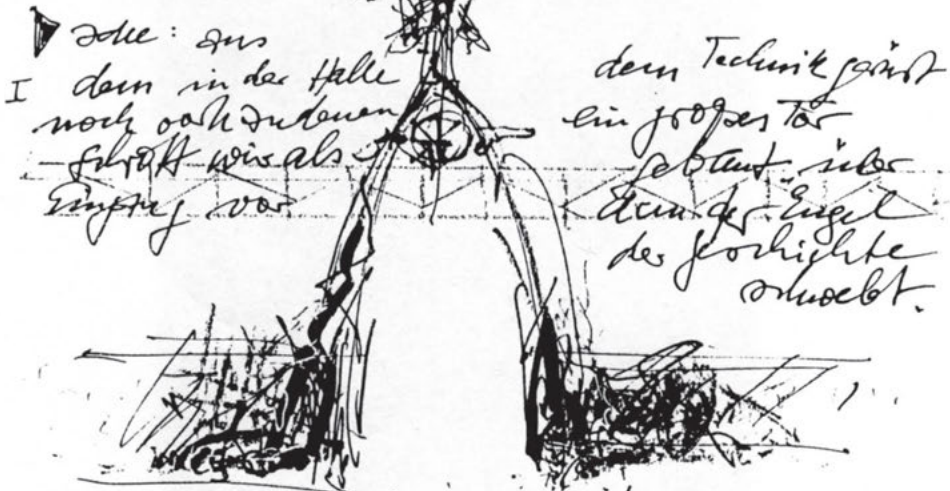 Idee: aus
I dem in der Halle
noch vorhandenen
Schrott wird als
Eingang vor
dem Technikgerüst
ein großes Tor
gebaut, über
dem der "Engel
der Geschichte
schwebt.